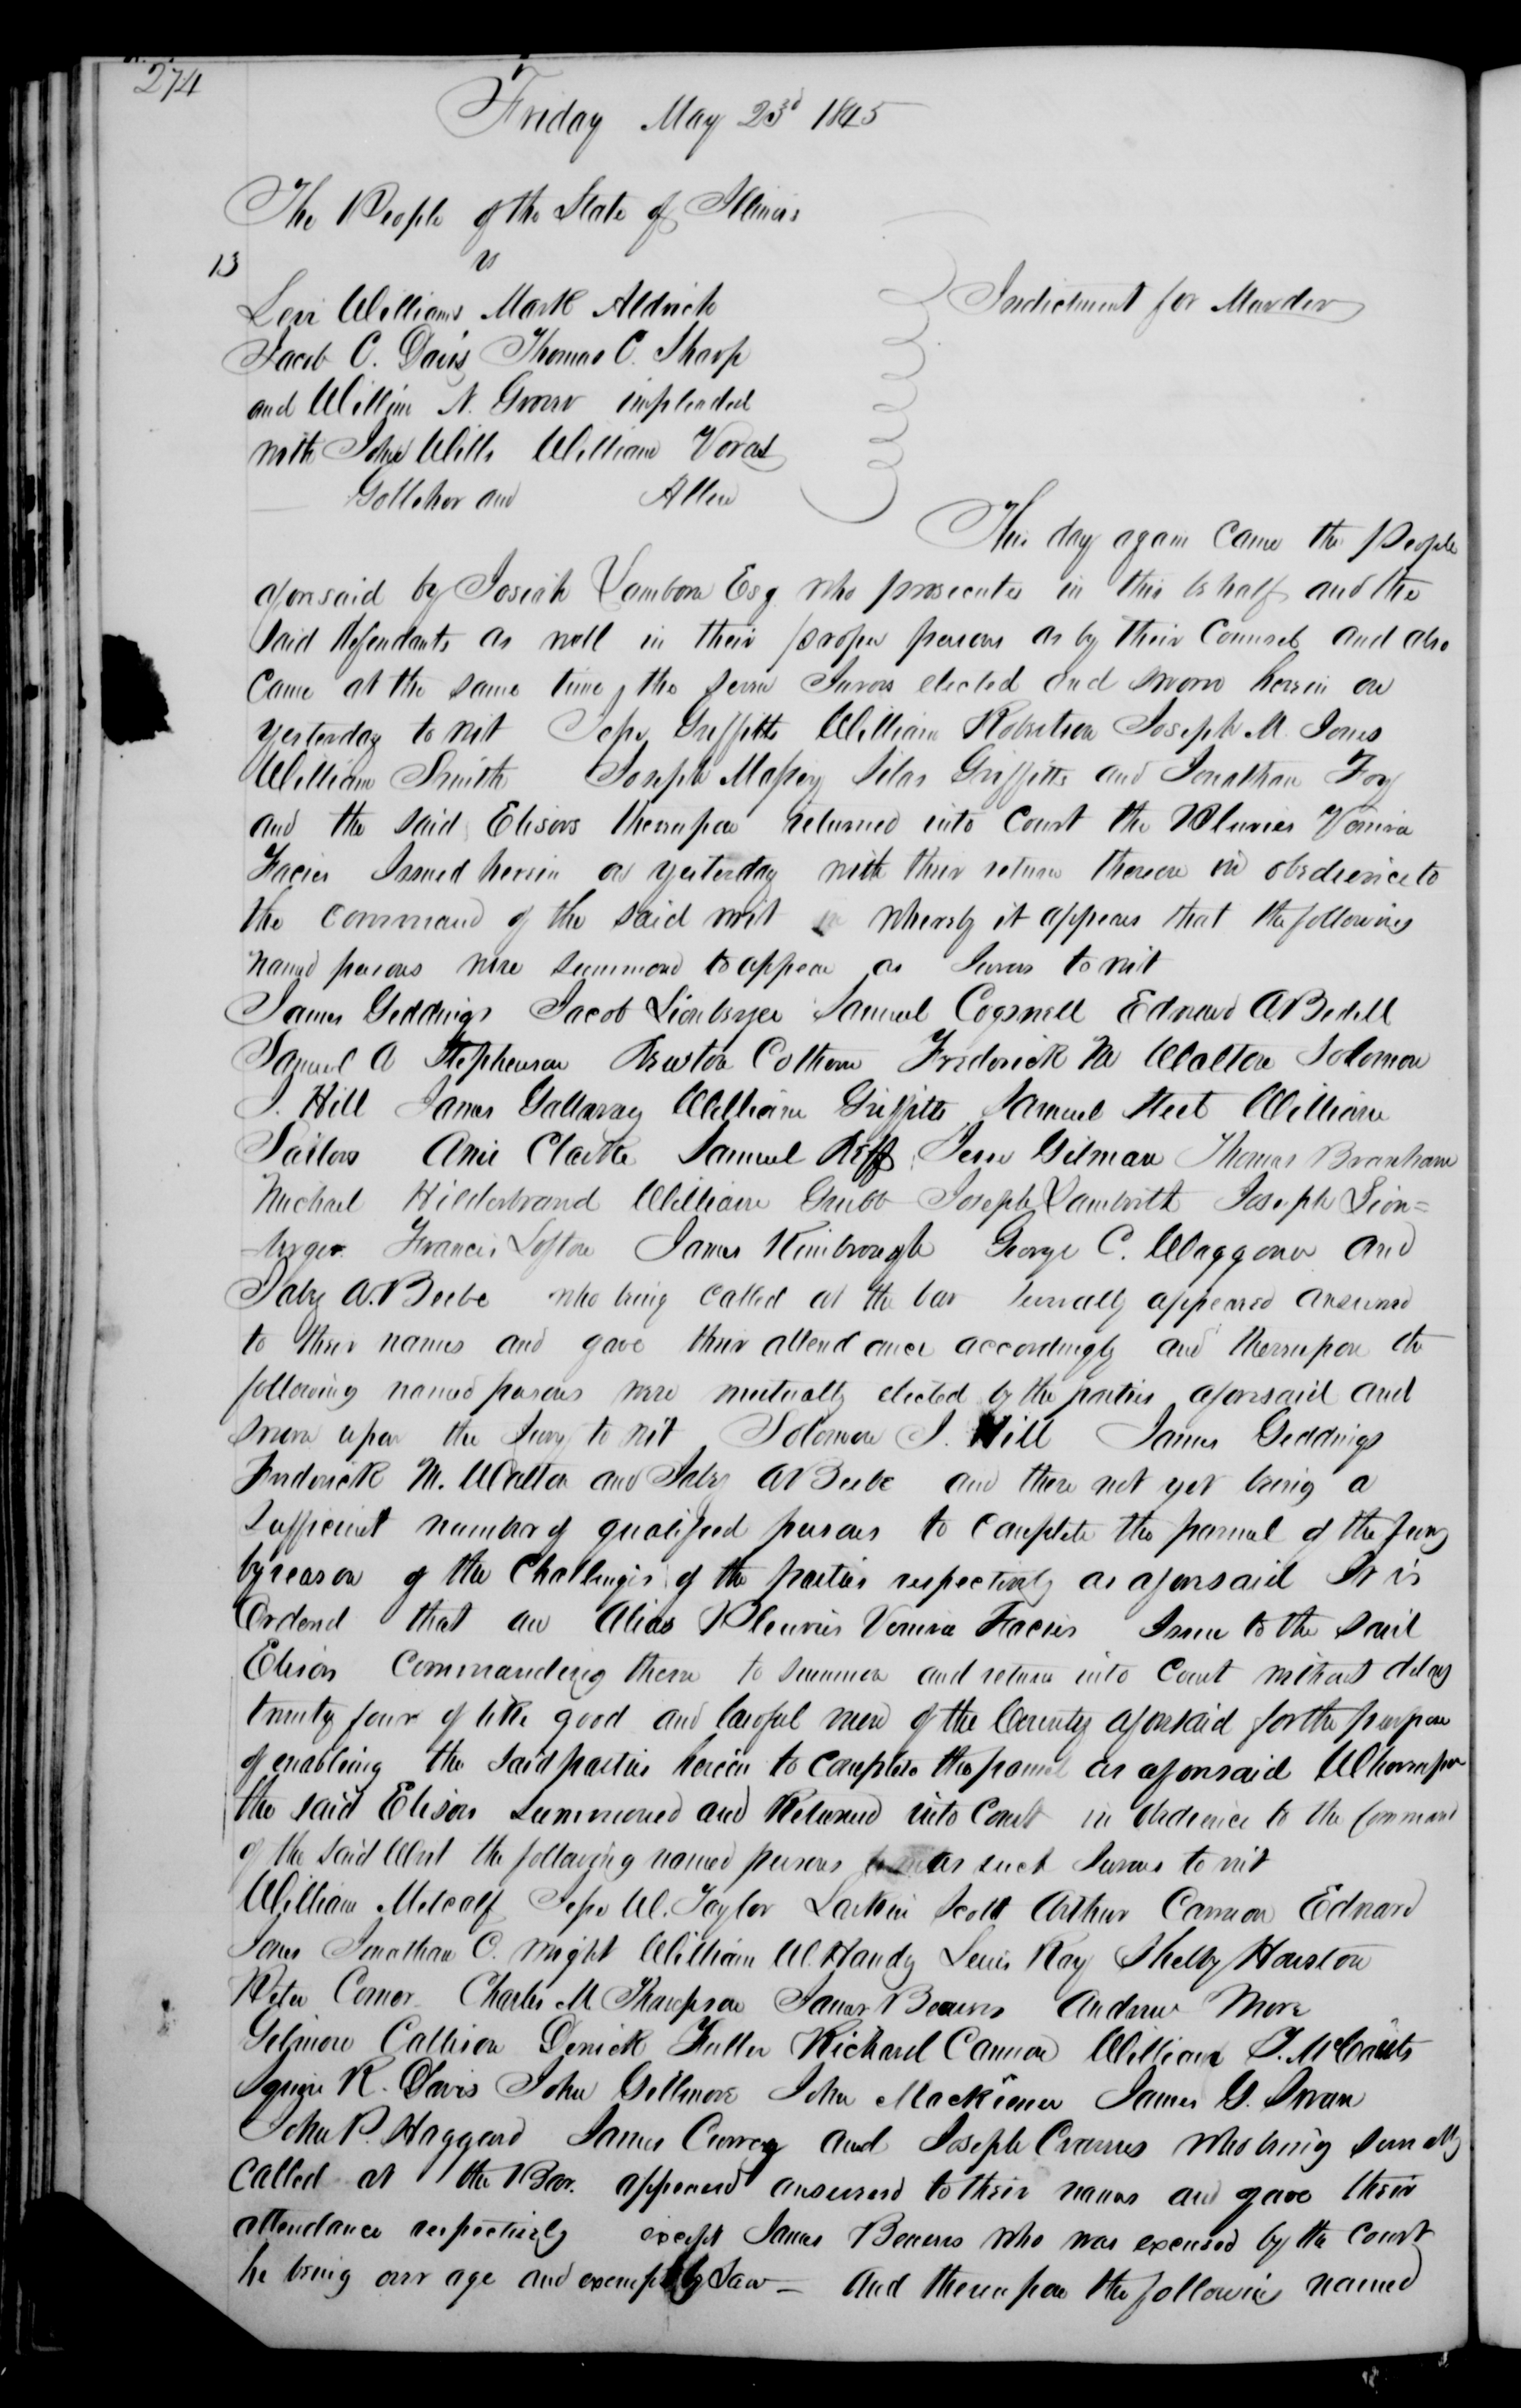 274
Friday May 23d 1845
The People of the State of Illinois
13 vs
Levi Williams Mark Aldrich
Indictment for Murder
Jacob C. Davis Thomas C. Sharp
and William N. Grover impleaded
with John Wills William Voras
Gollehor and Allen
This day again came the People
aforesaid by Josiah Lamborn Esq who prosecutes in this behalf and the
said defendants as well in their proper persons as by their Counsel and also
came at the same time, the seven Jurors elected and sworn herein on
yesterday to wit Jesse Griffitts William Robertson Joseph M. Jones
William Smith Joseph Massey Silas Griffitts and Jonathan Foy
and the said Elisors thereupon returned into Court the Pluries Venire
Facies Issued herein on yesterday with their return thereon in obedience to
the command of the said writ whereby it appears that the following
named persons were summoned to appear as Jurors to wit
James Geddings Jacob Lionberger Samuel Cogswell Edward A. Bedell
Samuel A Stephenson Newton Colhorn Frederick M Walton Solomon
J. Hill James Gallaway William Griffitts Samuel Steet William
Sailors Amie Clarke Samuel Neff Jesse Gilman Thomas Branham
Michael Hilderbrand William Grubb Joseph Lambrith Joseph Lion=
=berger Francis Lofton James Kimbrough George C. Waggoner and
Jabez A. Beebe who being called at the bar severally appeared answered
to their names and gave their attendance accordingly and thereupon the
following named persons were mutually elected by the parties aforesaid and
sworn upon the Jury to wit Solomon J. Hill James Geddings
Frederick M. Walton and Jabez A Beebe and there not yet being a
sufficient number of qualified persons to complete the pannel of the jury
by reason of the Challenges of the parties respectively as aforesaid It is
Ordered that an Alias Pleuries Venire Facies Issue to the said
Elisors Commanding them to summon and return into Court without delay
twenty four of like good and lawful men of the County aforesaid for the purpose
of enabling the said parties herein to complete the pannel as aforesaid Whereupon
the said Elisors summoned and Returned into Court in obedience to the command
of the said Writ the following named persons as such Jurors to wit
William Metcalf Jesse W. Taylor Larkin Scott Arthur Cannon Edward
Jones Jonathan C. Wright William W. Handy Lewis Ray Shelby Houston
Peter Comer Charles M Thompson James Beavers Andrew More
Gilmore Callison Derrick Fuller Richard Cannon William S. McCants
Squire R. Davis John Gillmore John Mackinner James G. Swan
John P. Haggard James Currey and Joseph who being severally
called at the Bar. appeared answered to their names and gave their
attendance respectively except James Beavers who was excused by the Court
he being over age and exempt by Law – and thereupon the following named